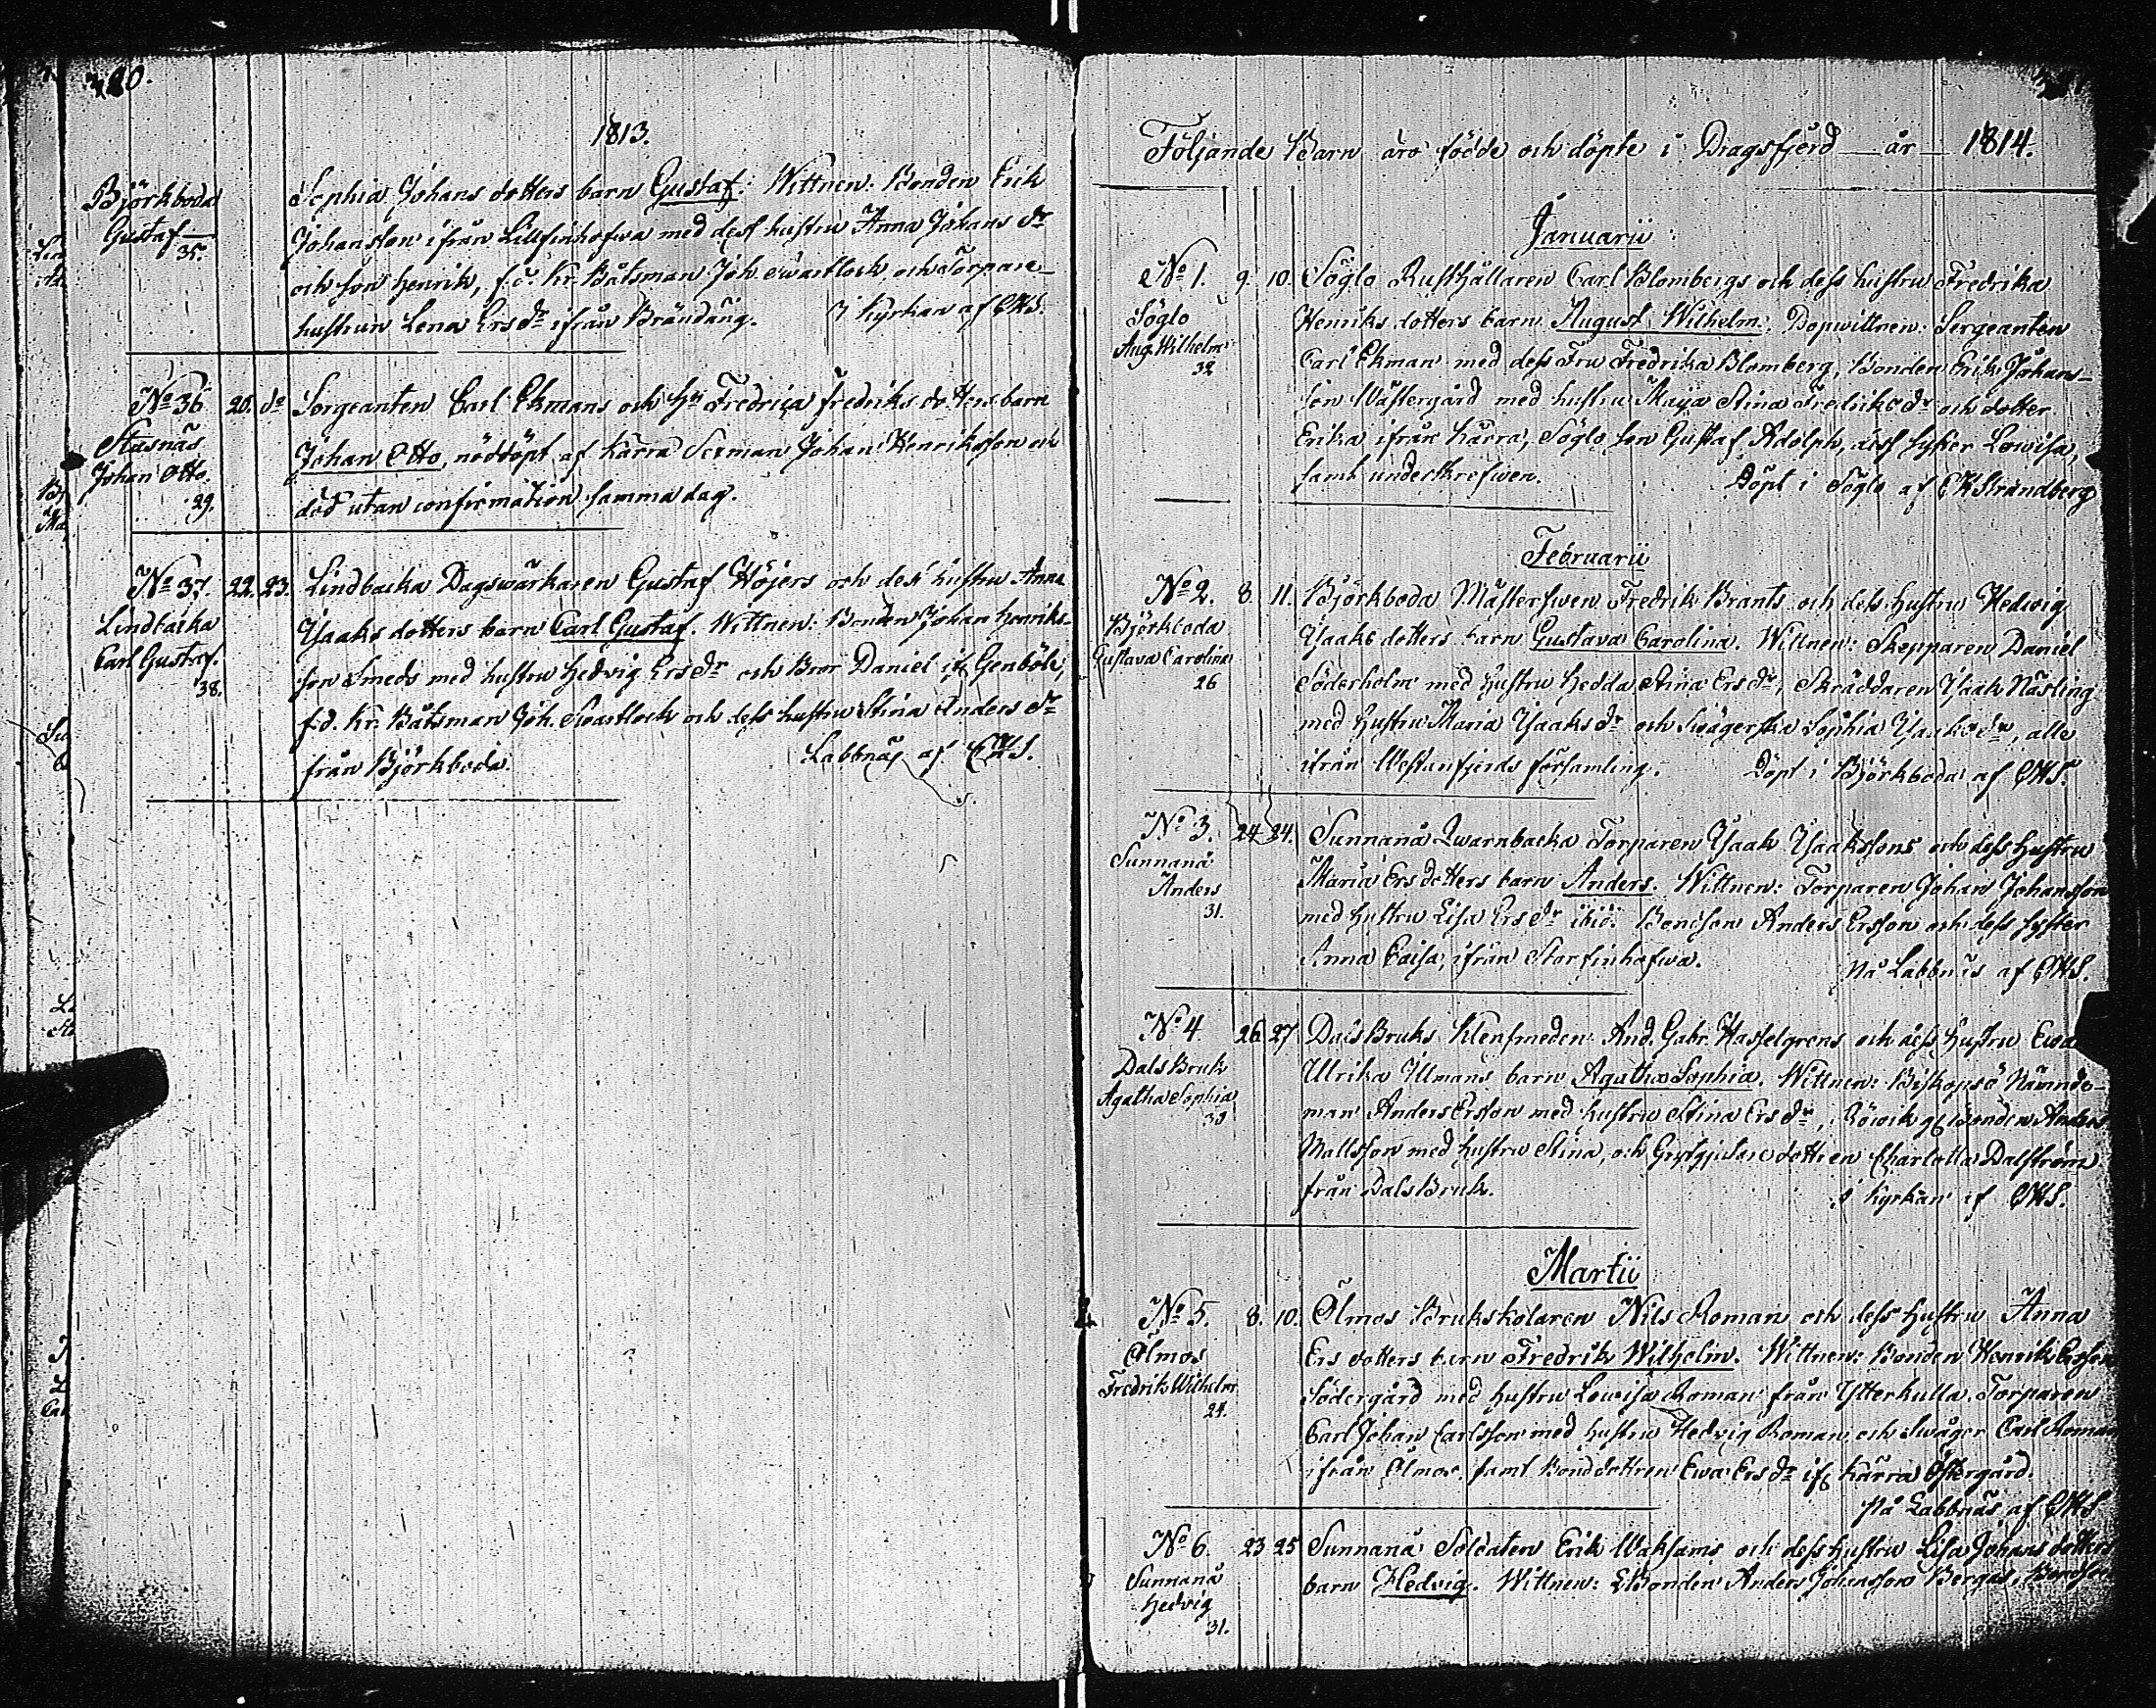 1813.
Björkboda
Gustaf
35.
Sophia Johans dotters barn Gustaf. Wittnen: Bonden Erik
Johansson ifrån Lillfinhofwa med dess hustru Anna Johans dr
och son Henrik, f.d. Kr. Båtsman Joh. Swartlock och Torpare-
hustrun Lena Ersdr ifrån Brändäng. I Kyrkan af EKS.
No 36 20. do Sergeanten Carl Ekmans och Hu Fredrica Fredriks dotters barn
Stusnäs
Johan Otto.
29.
Johan Otto, nöddöpt af Kärra Sexman Johan Henriksson och
död utan confirmation samma dag.
No 37. 22. 23. Lindbacka Dagswärkaren Gustaf Höjers och dess hustru Anna
Lindbacka
Carl Gustaf.
38.
Isaaks dotters barn Carl Gustaf. Wittnen: Bonden Johan Henriks-
son Smeds med hustru Hedvig Ersdr och Bror Daniel if. Genböle,
f.d. Kr. Båtsman Joh. Swartlock och dess hustru Stina Anders dr
från Björkboda. Labbnäs af EKS.
Följande Barn äro födde och döpte i Dragsfjerd år 1814.
Januarii
No 1. 9. 10. Söglo Rusthållaren Carl Blombergs och dess hustru Fredrika
Söglo
Aug. Wilhelm
32
Henriks dotters barn August Wilhelm. Dopwittnen: Sergeanten
Carl Ekman med dess Fru Fredrika Blomberg, Bonden Erik Johans-
son Wästergård med hustru Maija Stina Fredriks dr och dotter
Erika ifrån Kärra, Söglo son Gustaf Adolph, dess syster Lowisa,
samt underskrefwen. Döpt i Söglo af EK Strandberg
Februarii
No 2. 8. 11. Björkboda Mästerswen Fredrik Brants och dess hustru Hedwig
Björkboda
Gustava Carolina
26
Isaaks dotters barn Gustava Carolina. Wittnen: Skepparen Daniel
Söderholm med hustru Hedda Stina Ersdr, Skräddaren Isaak Näsling
med hustru Maria Isaaks dr och Swägerska Sophia Isaaks dr, alle
ifrån Westanfjerds församling. Döpt i Björkboda af EKS.
No 3. 24 24. Sunnanå Qwarnbacka Torparen Isaak Isaakssons och dess hustru
Sunnanå
Anders
31.
Maria Ers dotters barn Anders. Wittnen: Torparen Johan Johansson
med hustru Lisa Ersdr ibid. Bondson Anders Ersson och dess syster
Anna Caisa, ifrån Storfinhofwa. På Labbnäs af EKS.
No 4. 26 27 DalsBruks Klensmeden And. Gabr. Hasselgrens och dess hustru Ewa
DalsBruk
Agatha Sophia
30
Ulrika Illmans barn Agatha Sophia. Wittnen: Biskopsö Nämnde-
man Anders Ersson med hustru Stina Ersdr, Bonden Anders
Mattsson med hustru Stina, och dottren Charlotta Dalström
från DalsBruk. I Kyrkan af EKS.
Martii
No 5. 8. 10. Ölmos Brukskolaren Nils Roman och dess hustru Anna
Ölmos
Fredrik Wilhelm
24.
Ers dotters barn Fredrik Wilhelm. Wittnen: Bonden Henrik Ersson
Södergård med hustru Lowisa Roman från Ytterkulla. Torparen
Carl Johan Carlsson med hustru Hedvig Roman, och Swåger Carl Roman
ifrån Ölmos, samt Bonddottren Ewa Ersdr if. Kärra Östergård.
På Labbnäs af EKS
No 6. 23 25 Sunnanå Soldaten Erik Waksams och dess hustru Lisa Johans dotters
Sunnanå
Hedvig
31.
barn Hedvig. Wittnen: Bonden Anders Johansson Bergas,